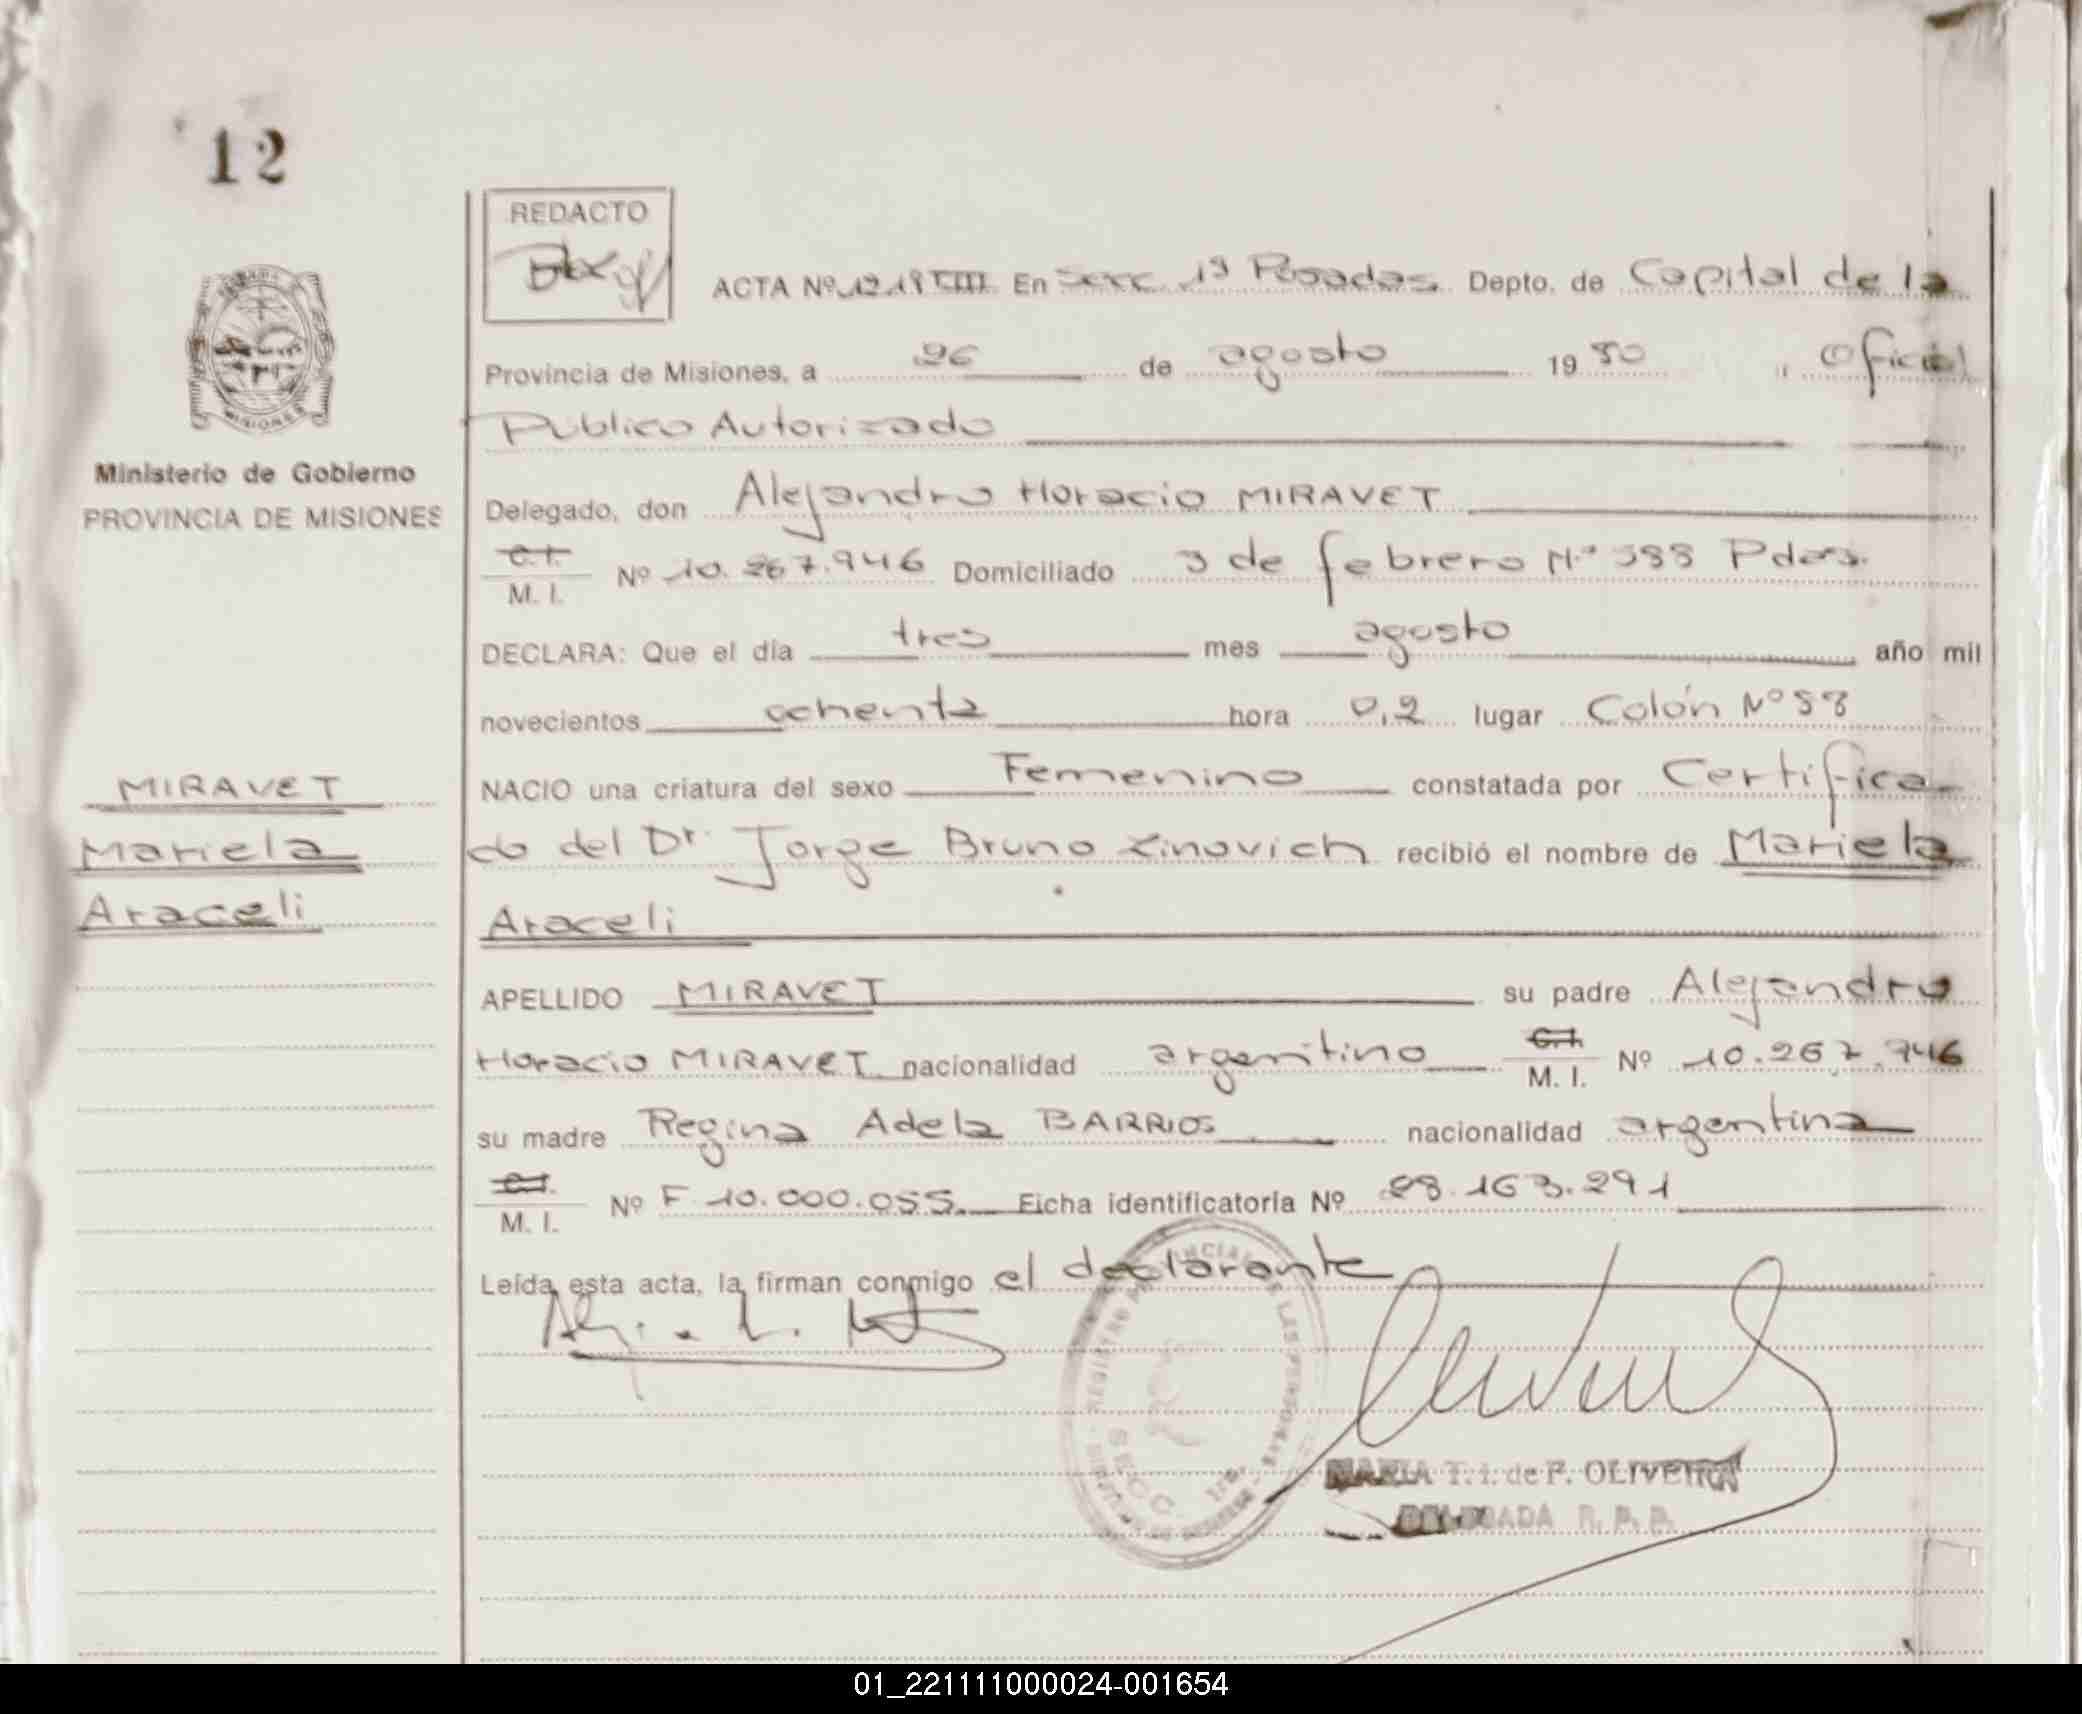 12
REDACTO
ACTA Nº 1219 TIII En Secc. 1ª Posadas Depto. de Capital de la
Provincia de Misiones, a 26 de agosto 19 80 Oficial
Público Autorizado
Ministerio de Gobierno
PROVINCIA DE MISIONES
Delegado, don Alejandro Horacio MIRAVET
C. I.
M. I. Nº 10.267.946 Domiciliado 3 de febrero Nº Pdas.
DECLARA: Que el día tres mes agosto año mil
novecientos ochenta hora 0,2 lugar Colón Nº
MIRAVET
Mariela
Araceli
NACIO una criatura del sexo Femenino constatada por Certifica-
do del Dr. Jorge Bruno Zinovich recibió el nombre de Mariela
Araceli
APELLIDO MIRAVET su padre Alejandro
Horacio MIRAVET nacionalidad argentino C. I. M. I. Nº 10.267.946
su madre Regina Adela BARRIOS nacionalidad argentina
C. I.
M. I. Nº F. 10.000.055. Ficha identificatoria Nº 28.163.291
Leída esta acta, la firman conmigo el declarante
SECC. 1ra.
MARIA T. I. de F. OLIVEIRA
DELEGADA R. P. P.
01_221111000024-001654